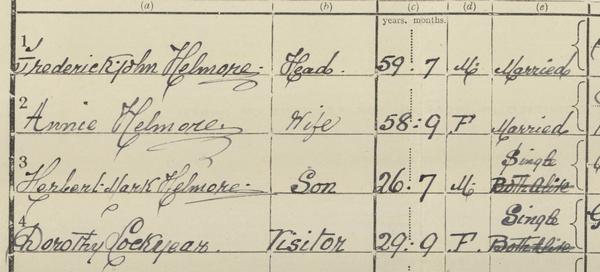 (a) (b) (c) (d) (e)
years. months.
1 Frederick John Helmore. Head. 59. 7 M. Married
2 Annie Helmore. Wife 58. 9 F Married
3 Single
Herbert Mark Helmore. Son 26. 7 M. Both Alive
4 Single
Dorothy Lockyear. Visitor 29. 9 F. Both Alive